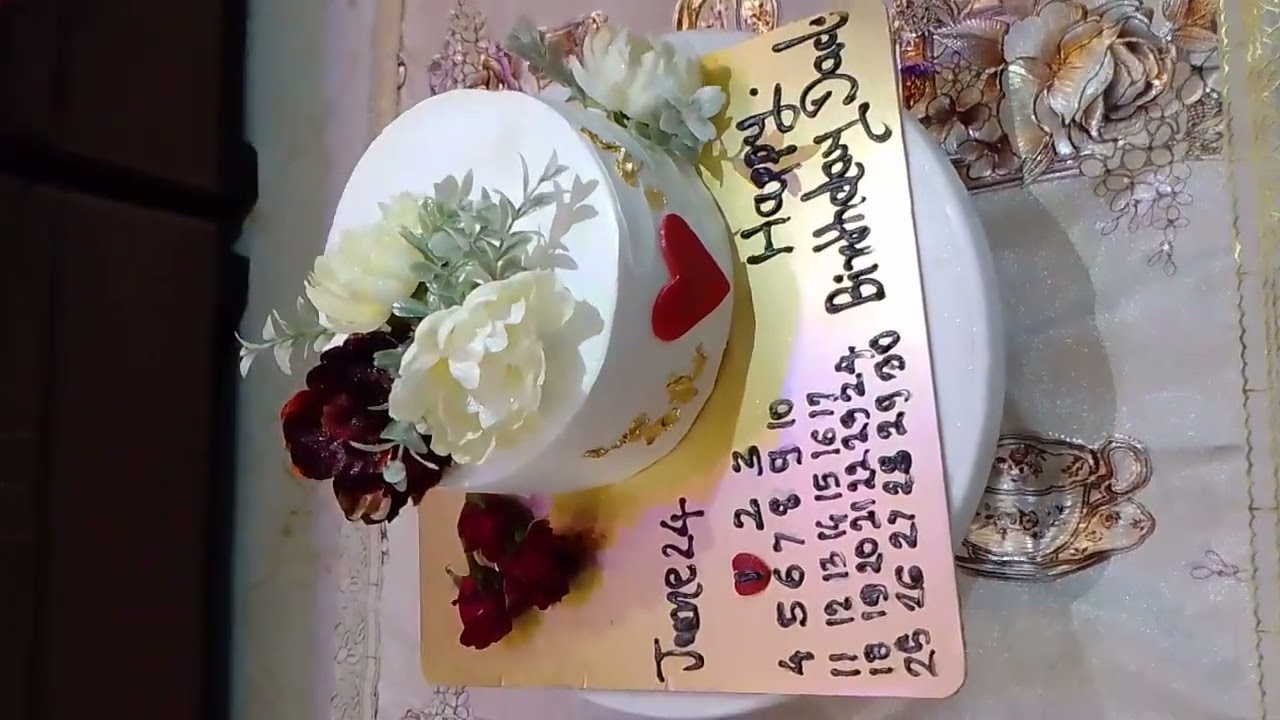 June 24
1 2 3
4 5 6 7 8 9 10
11 12 13 14 15 16 17
18 19 20 21 22 23 24
25 26 27 28 29 30
Happy
Birthday Dad